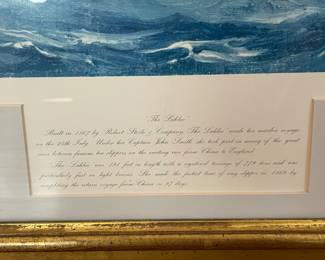 "The Lahloo"
Built in 1867 by Robert Steele & Company, The Lahloo made her maiden voyage
on the 28th July. Under her Captain John Smith she took part in many of the great
races between famous tea clippers on the exciting run from China to England.
The Lahloo was 191 feet in length with a registered tonnage of 779 tons and was
particularly fast in light breezes. She made the fastest time of any clipper in 1869 by
completing the return voyage from China in 97 days.